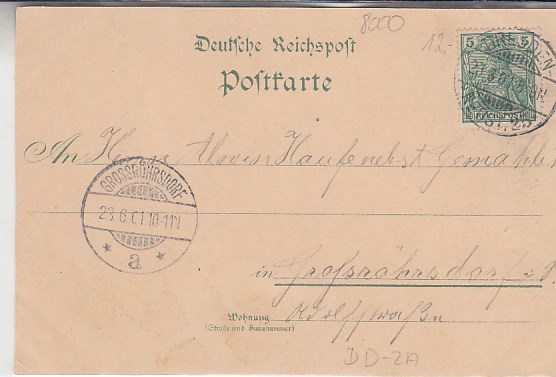 8000
12.-
Deutsche Reichspost
Postkarte
5 5
DRESDEN
REICHSPOST
An Herrn Alwin Haufe nebst Gemahlin
GROSSRÖHRSDORF
23.6.01 10-11V
* a *
in Großröhrsdorf
Wohnung
(Straße und Hausnummer)
Adolfstraße
DD-2A